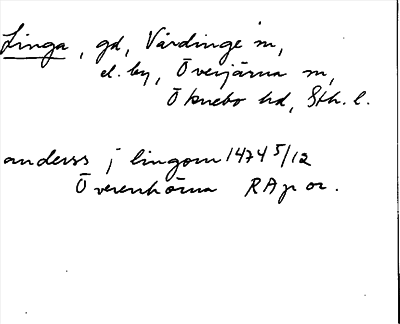 Linga, gd, Vårdinge m,
el. by, Överjärna m,
Öknebo hd, Sth. l.
anderss j lingom 1474 5/12
Överenhörna RAp or.